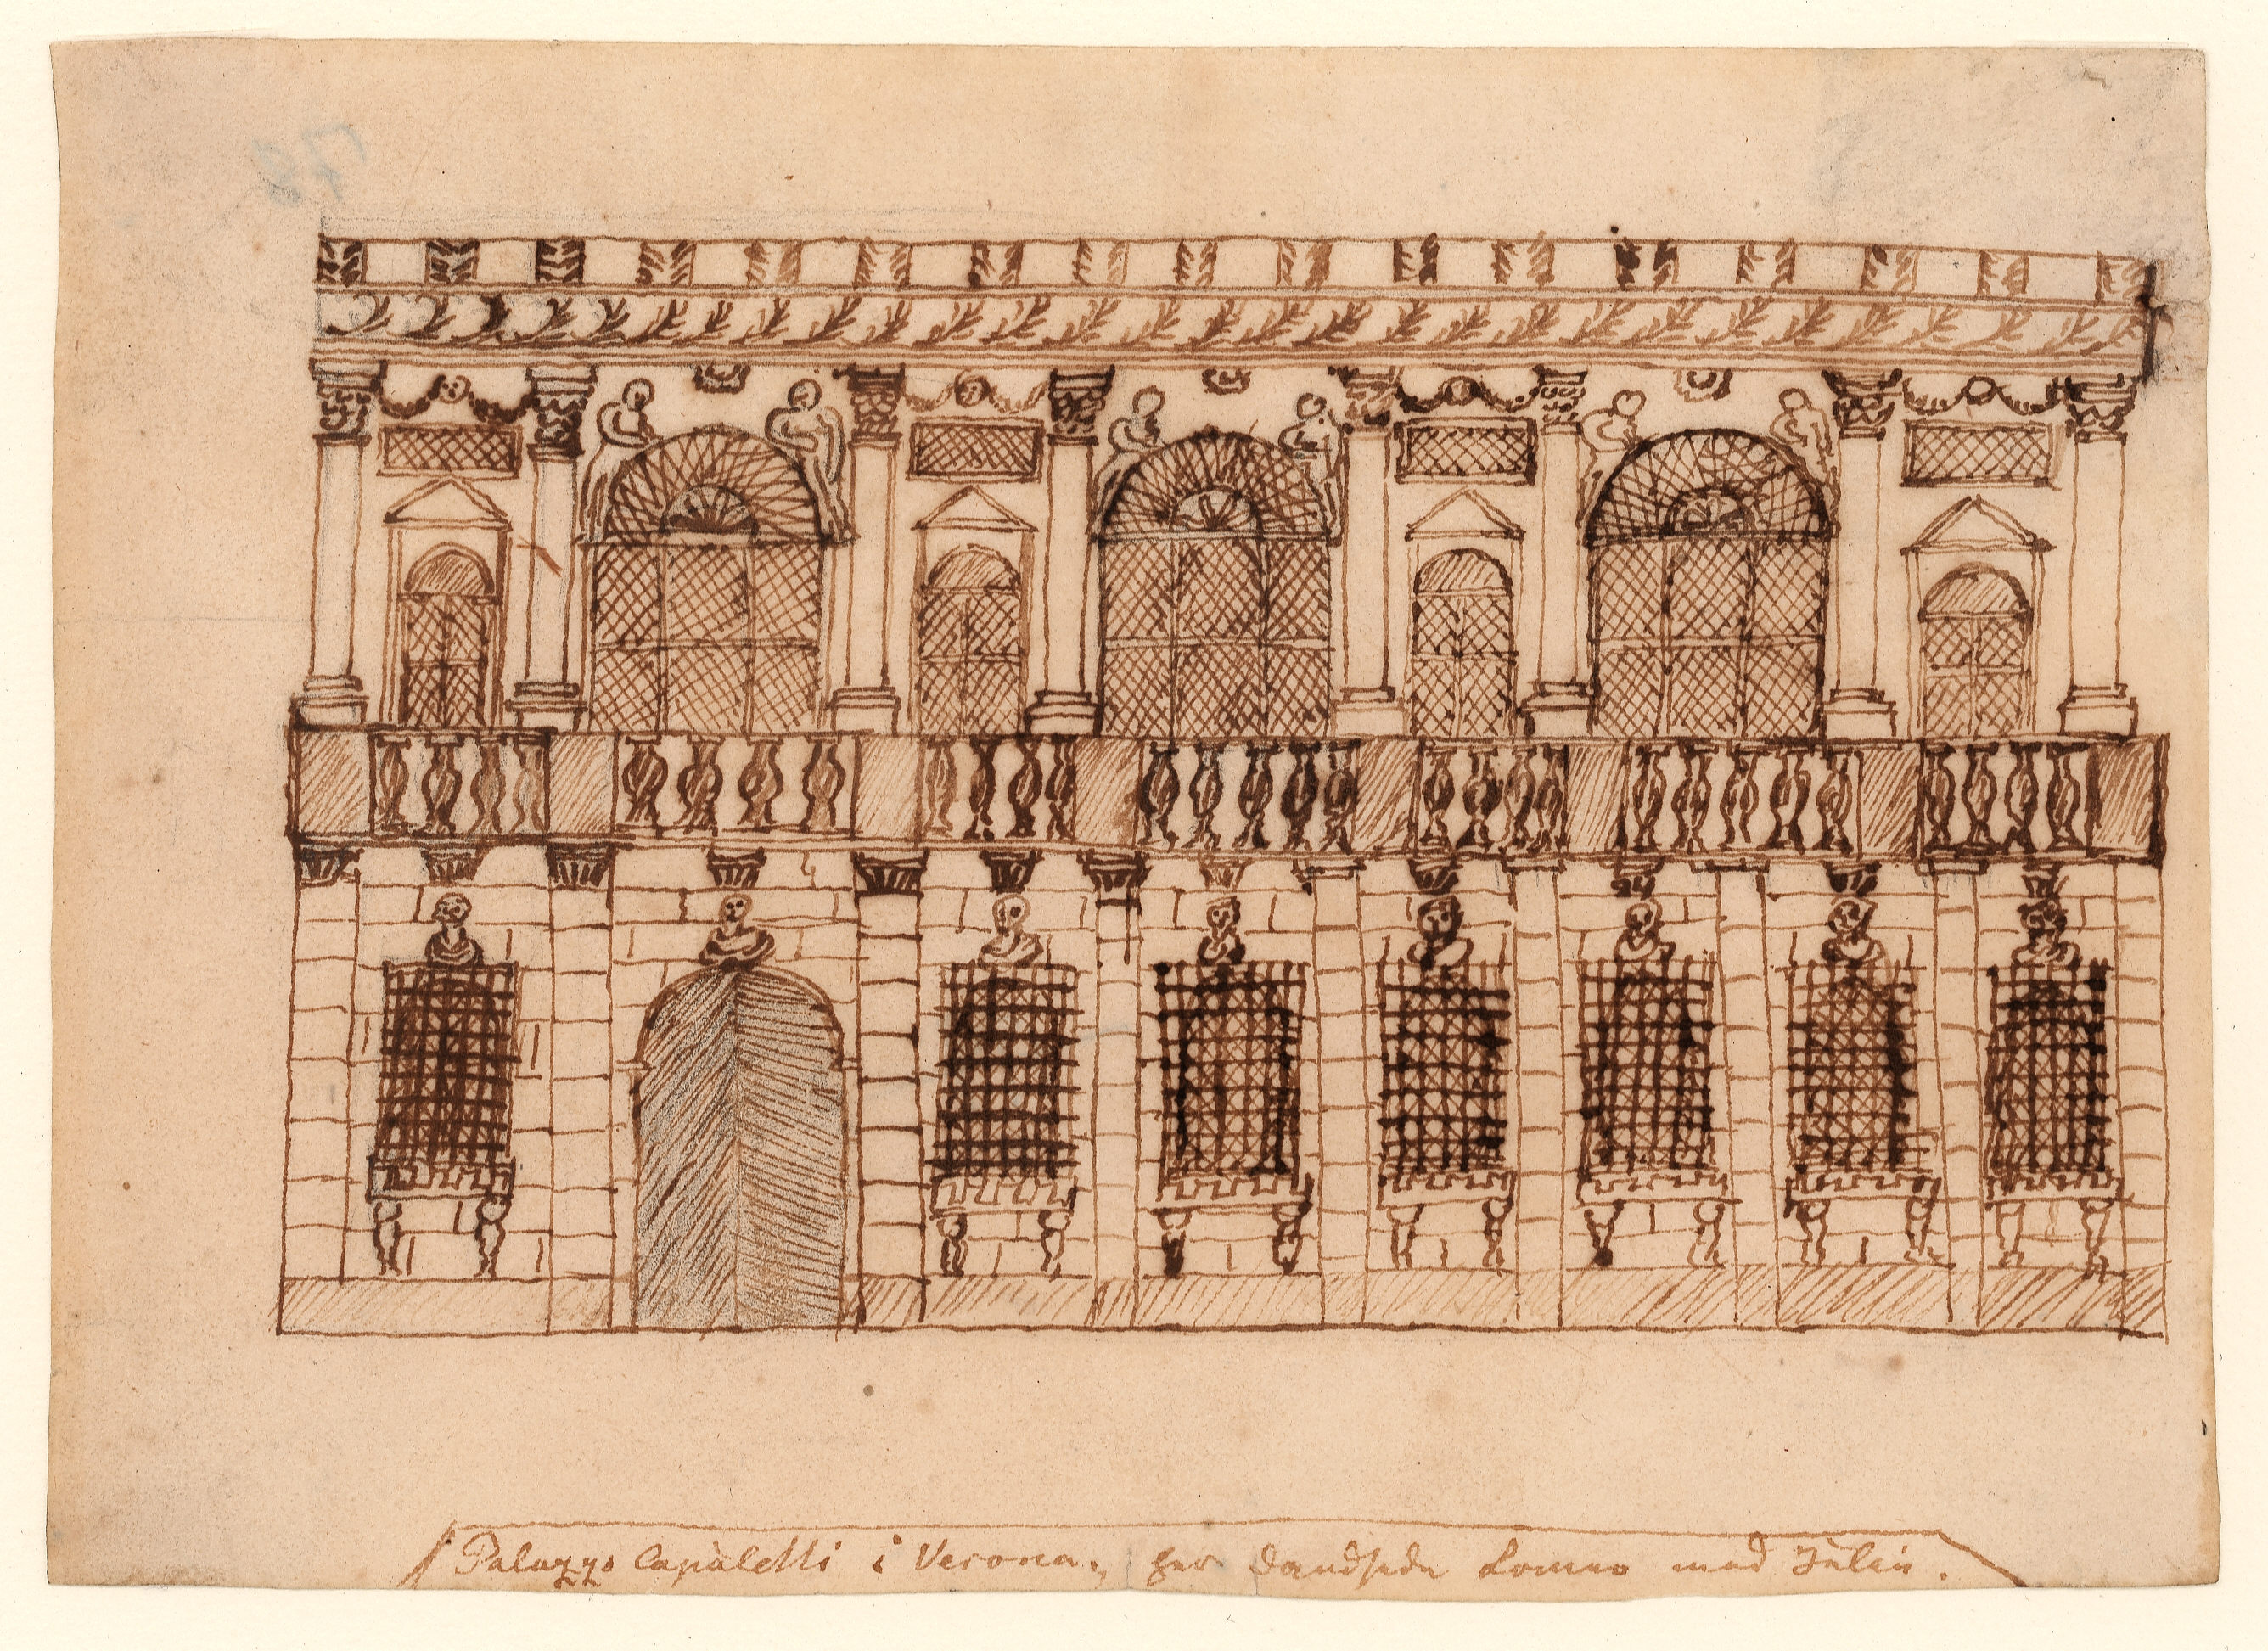 Palazzo Capuletti i Verona, her dandsede Romeo med Julie.